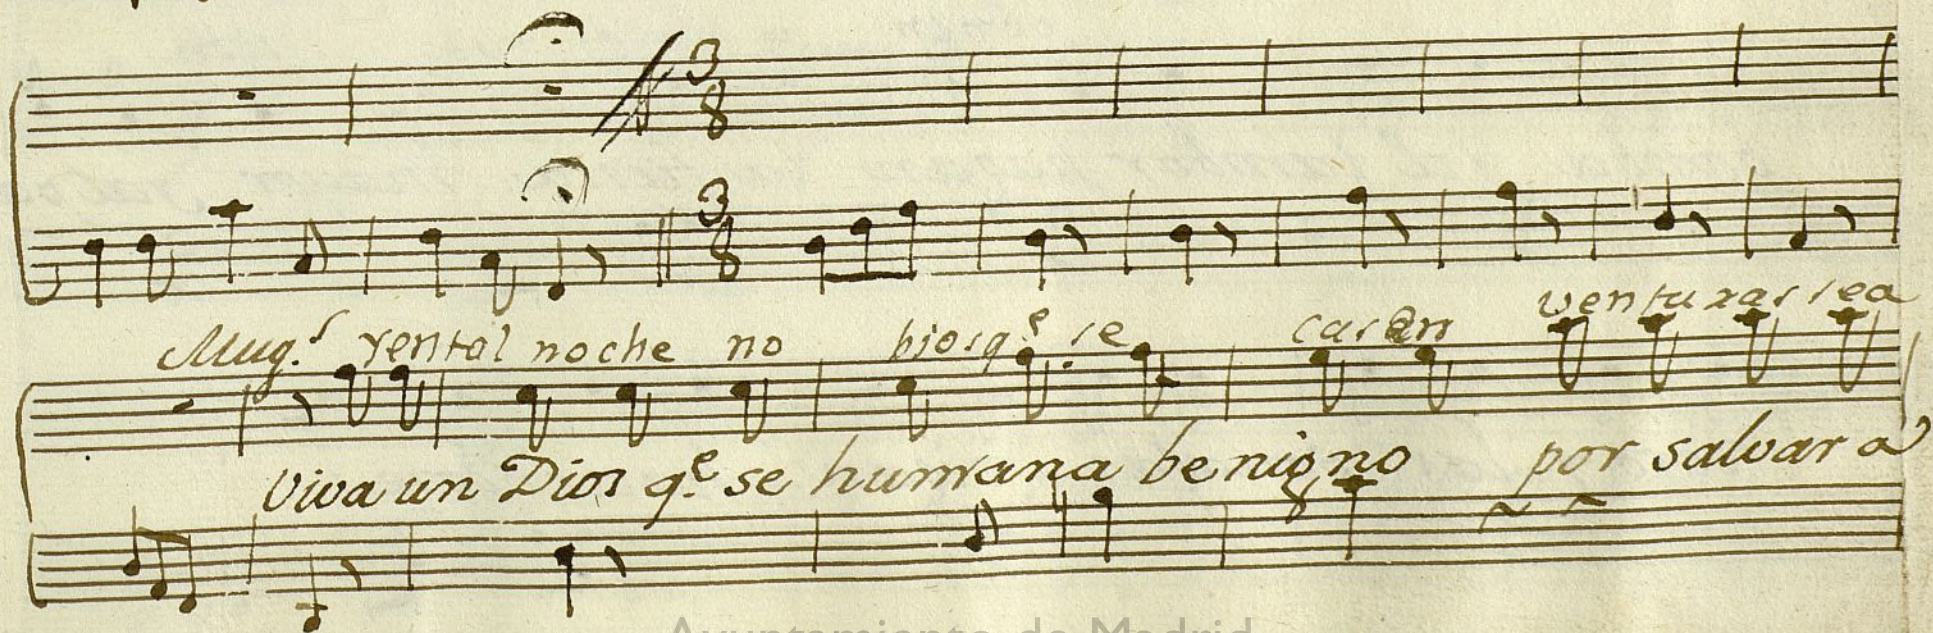 3
8
3
8
Mug.s yental noche no hios q.e se casan venturas sea
viva un Dios q.e se humana benigno por salvar a
Ayuntamiento de Madrid